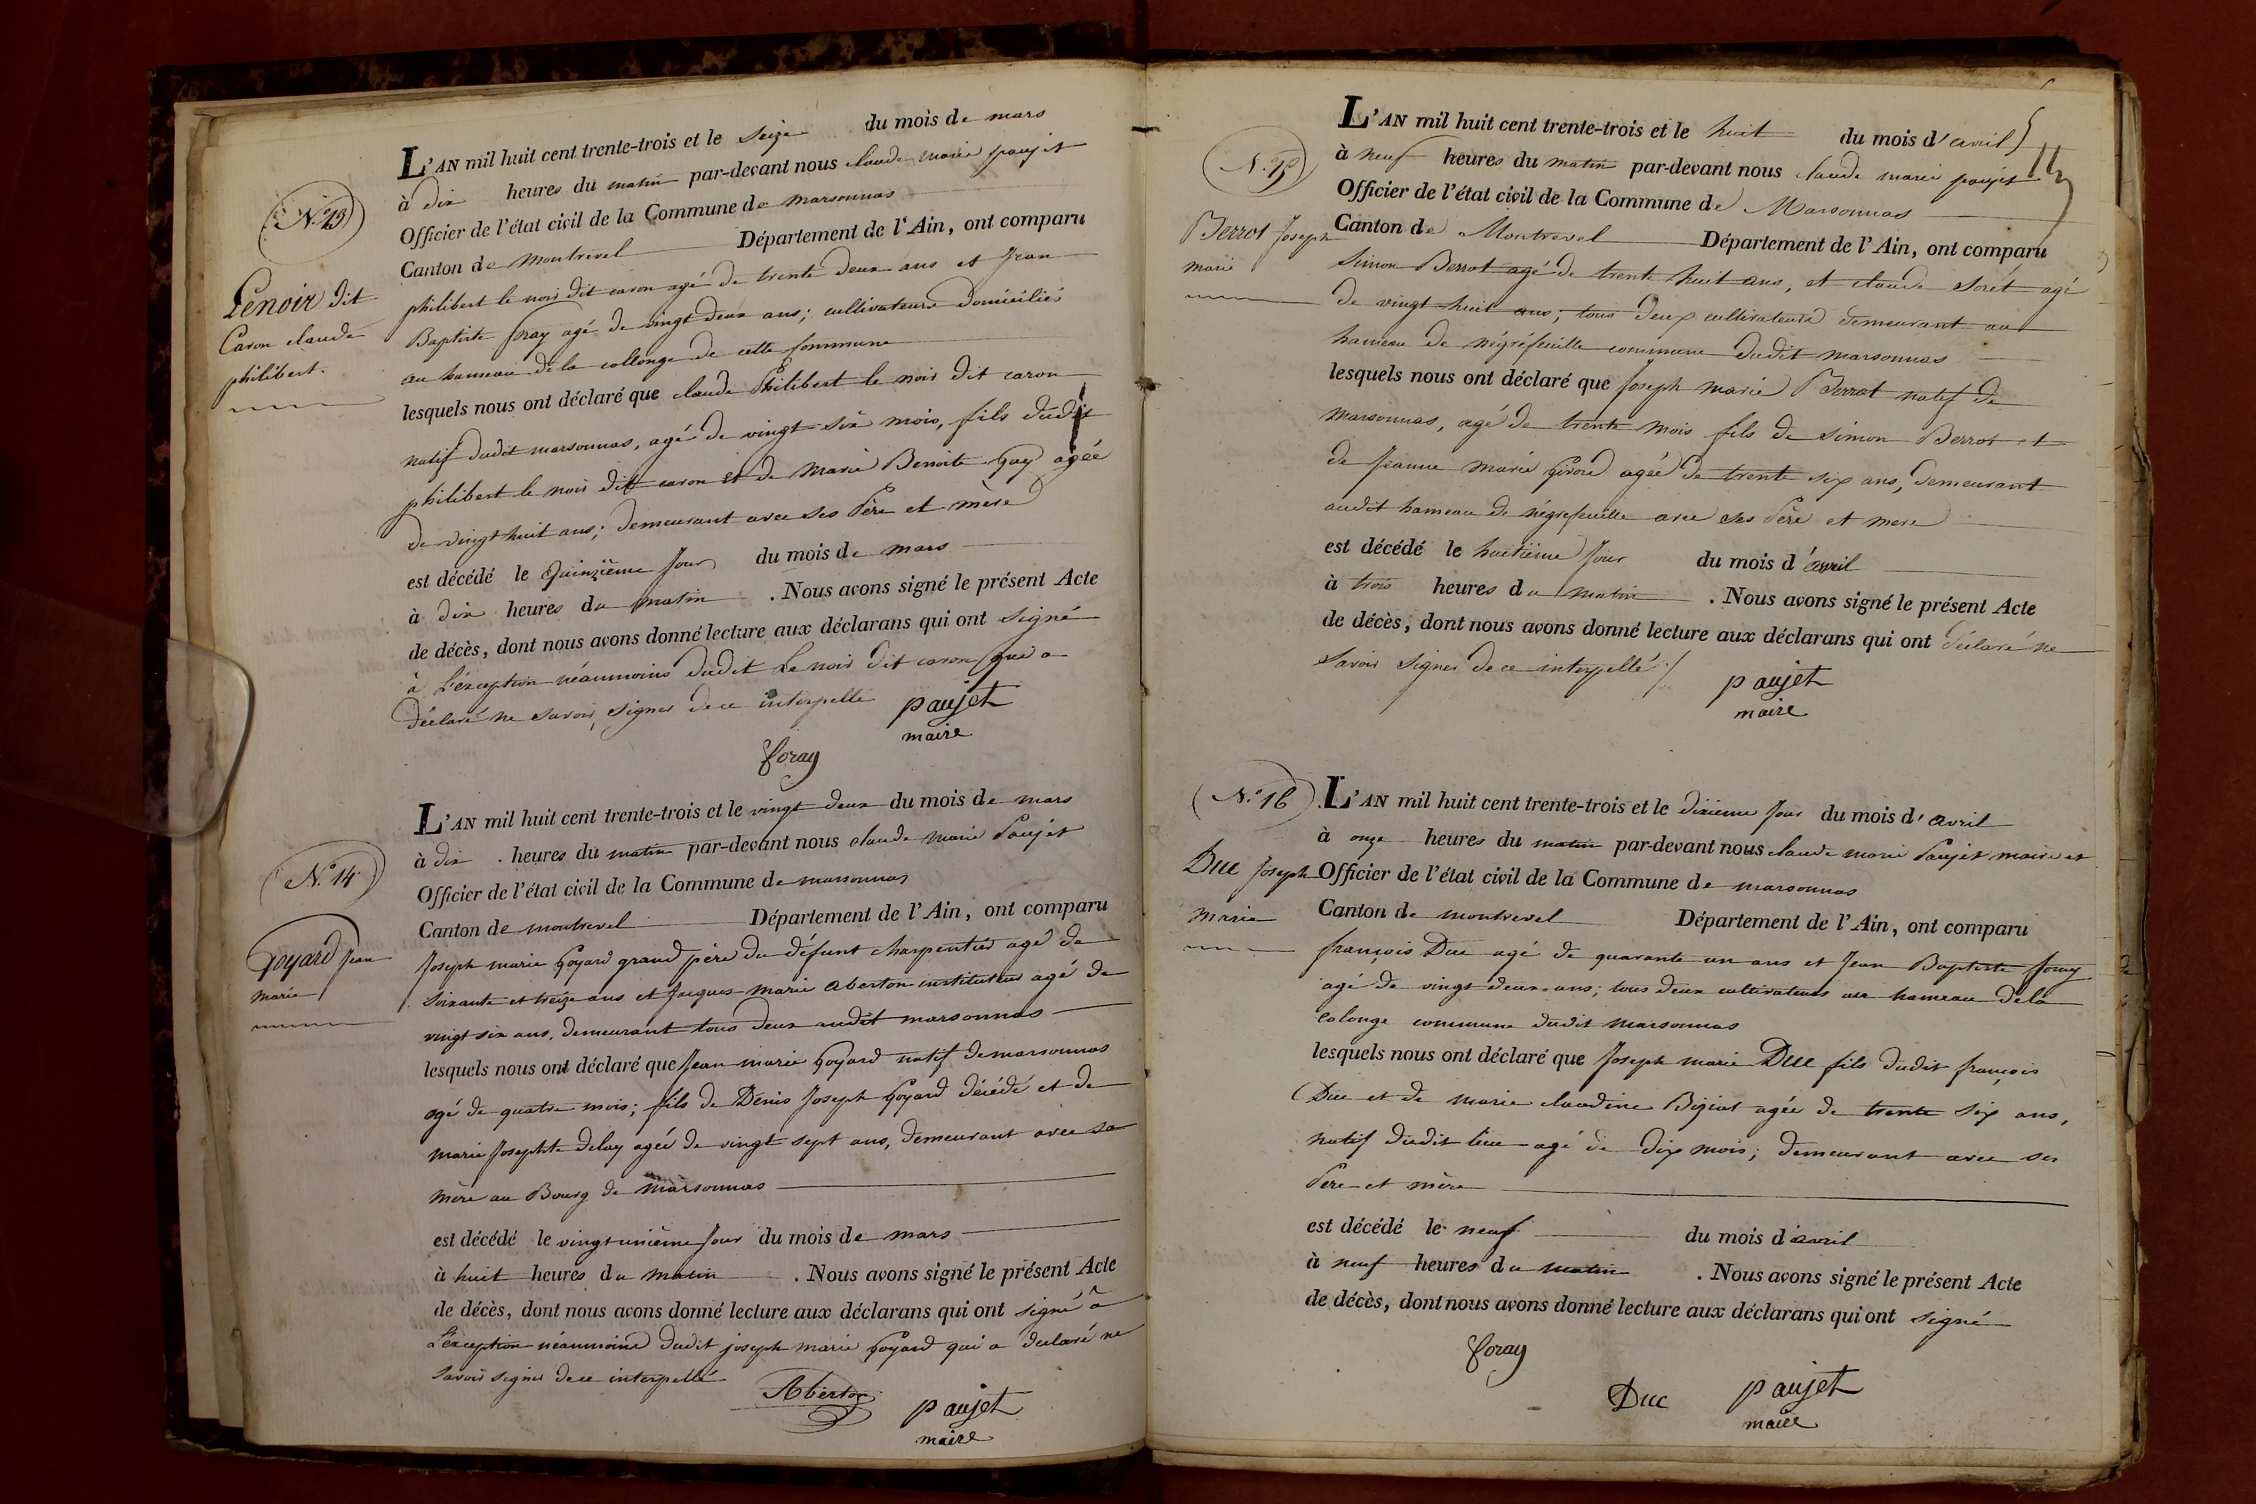 N.° 13
Lenoir dit
Caron claude
philibert.
L'AN mil huit cent trente-trois et le seize du mois de mars
à dix heures du matin par-devant nous claude marie paujet
Officier de l'état civil de la Commune de marsonnas
Canton de montrevel Département de l'Ain, ont comparu
philibert le noir dit caron agé de trente deux ans et Jean
Baptiste foray agé de vingt deux ans; cultivateurs domiciliés
au hameau de la collonge de cette commune
lesquels nous ont déclaré que claude Philibert le noir dit caron
natif dudit marsonnas, agé de vingt six mois, fils dudit
philibert le noir dit caron et de Marie Benoite Guy agée
de vingt huit ans; demeurant avec ses Père et mère
est décédé le Quinzième Jour du mois de mars
à dix heures du matin . Nous avons signé le présent Acte
de décès, dont nous avons donné lecture aux déclarans qui ont signé
à L'éxception néanmoins dudit Le noir dit caron qui a
déclaré ne savoir signer de ce interpellé paujet
maire
foray
N.° 14
Goyard Jean
marie
L'AN mil huit cent trente-trois et le vingt deux du mois de mars
à dix heures du matin par-devant nous claude marie Paujet
Officier de l'état civil de la Commune de marsonnas
Canton de montrevel Département de l'Ain, ont comparu
Joseph marie Goyard grand père du défunt charpentier agé de
soixante et treize ans et Jacques marie Aberton instituteur agé de
vingt six ans, demeurant tous deux audit marsonnas
lesquels nous ont déclaré que Jean marie Goyard natif de marsonnas
agé de quatre mois; fils de Dénis Joseph Goyard décédé et de
marie Josephte Delay agée de vingt sept ans, demeurant avec sa
mère au Bourg de marsonnas
est décédé le vingt unième Jour du mois de mars
à huit heures du matin . Nous avons signé le présent Acte
de décès, dont nous avons donné lecture aux déclarans qui ont signé à
L'éxception néanmoins dudit joseph marie Goyard qui a déclaré ne
savoir signer de ce interpellé
Aberton paujet
maire
N.° 15
Berrot Joseph
marie
L'AN mil huit cent trente-trois et le huit du mois d'avril
à neuf heures du matin par-devant nous claude marie paujet
Officier de l'état civil de la Commune de Marsonnas
Canton de Montrevel Département de l'Ain, ont comparu
Simon Berrot agé de trente huit ans, et claude Soret agé
de vingt huit ans; tous deux cultivateurs demeurant au
hameau de négréfeuille commune dudit marsonnas
lesquels nous ont déclaré que Joseph marie Berrot natif de
marsonnas, agé de trente mois fils de Simon Berrot et
de Jeanne marie Girord agée de trente six ans, demeurant
audit hameau de négrefeuille avec ses Père et mere
est décédé le huitième Jour du mois d'avril
à trois heures du matin . Nous avons signé le présent Acte
de décès, dont nous avons donné lecture aux déclarans qui ont déclaré ne
savoir signer de ce interpellé
paujet
maire
N.° 16
Duc Joseph
marie
L'AN mil huit cent trente-trois et le dixième Jour du mois d'avril
à onze heures du matin par-devant nous claude marie Paujet maire et
Officier de l'état civil de la Commune de marsonnas
Canton de montrevel Département de l'Ain, ont comparu
françois Duc agé de quarante un ans et Jean Baptiste foray
agé de vingt deux ans; tous deux cultivateurs au hameau de la
colonge commune dudit marsonnas
lesquels nous ont déclaré que Joseph marie Duc fils dudit françois
Duc et de marie claudine Biziat agée de trente six ans,
natif dudit lieu agé de dix mois; demeurant avec ses
Père et mère
est décédé le neuf du mois d'avril
à neuf heures du matin . Nous avons signé le présent Acte
de décès, dont nous avons donné lecture aux déclarans qui ont signé
foray
Duc paujet
maire